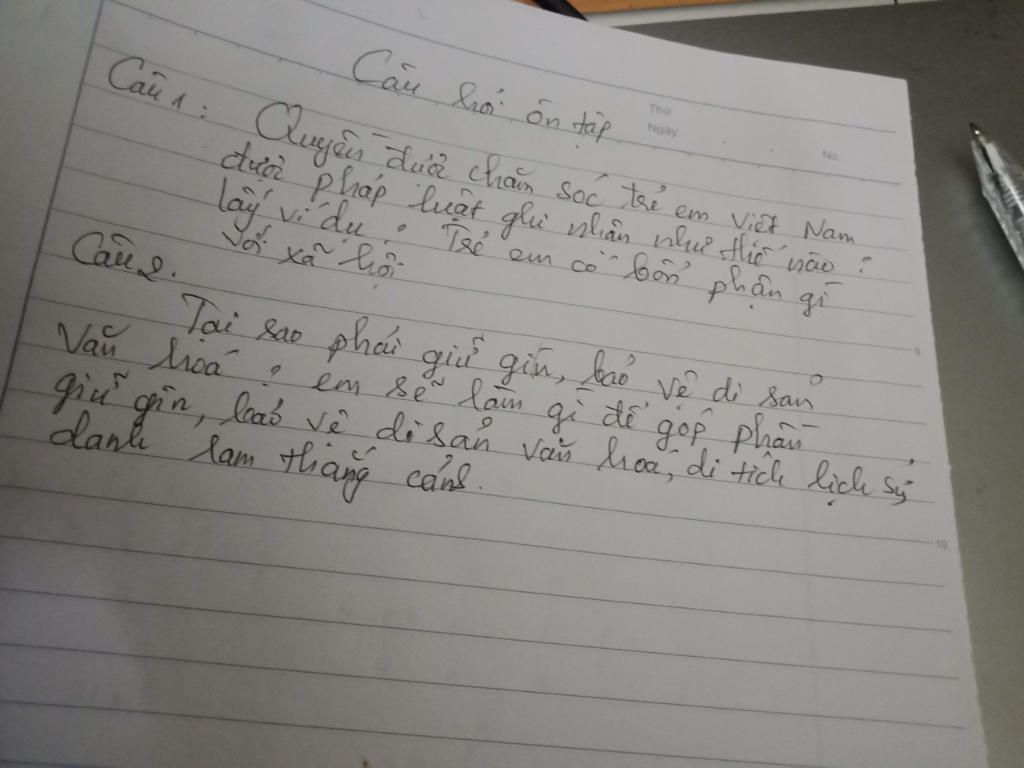 Câu hỏi ôn tập
Thứ
Ngày
No.
Câu 1: Quyền được chăm sóc trẻ em Việt Nam
được pháp luật ghi nhận như thế nào?
lấy ví dụ? Trẻ em có bổn phận gì
với xã hội
Câu 2.
Tại sao phải giữ gìn, bảo vệ di sản
văn hoá? em sẽ làm gì để góp phần
giữ gìn, bảo vệ di sản văn hoá, di tích lịch sử,
danh lam thắng cảnh.
5
10